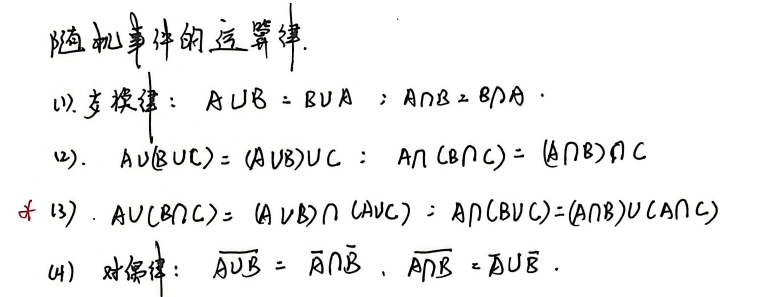 随机事件的运算律.
(1). 交换律: A∪B = B∪A ; A∩B = B∩A .
(2). A∪(B∪C) = (A∪B)∪C : A∩(B∩C) = (A∩B)∩C
* (3). A∪(B∩C) = (A∪B)∩(A∪C) : A∩(B∪C) = (A∩B)∪(A∩C)
(4) 对偶律: \overline{A∪B} = \overline{A}∩\overline{B} . \overline{A∩B} = \overline{A}∪\overline{B} .